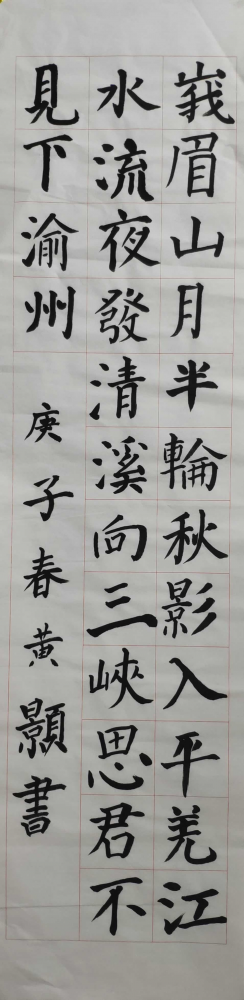 峩眉山月半輪秋影入平羌江
水流夜發清溪向三峽思君不
見下渝州
庚子春黃顥書